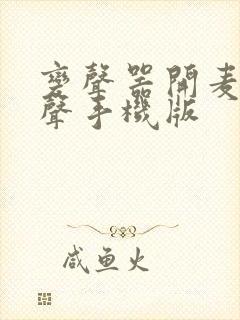 變聲器開麦
聲手機版
咸鱼火